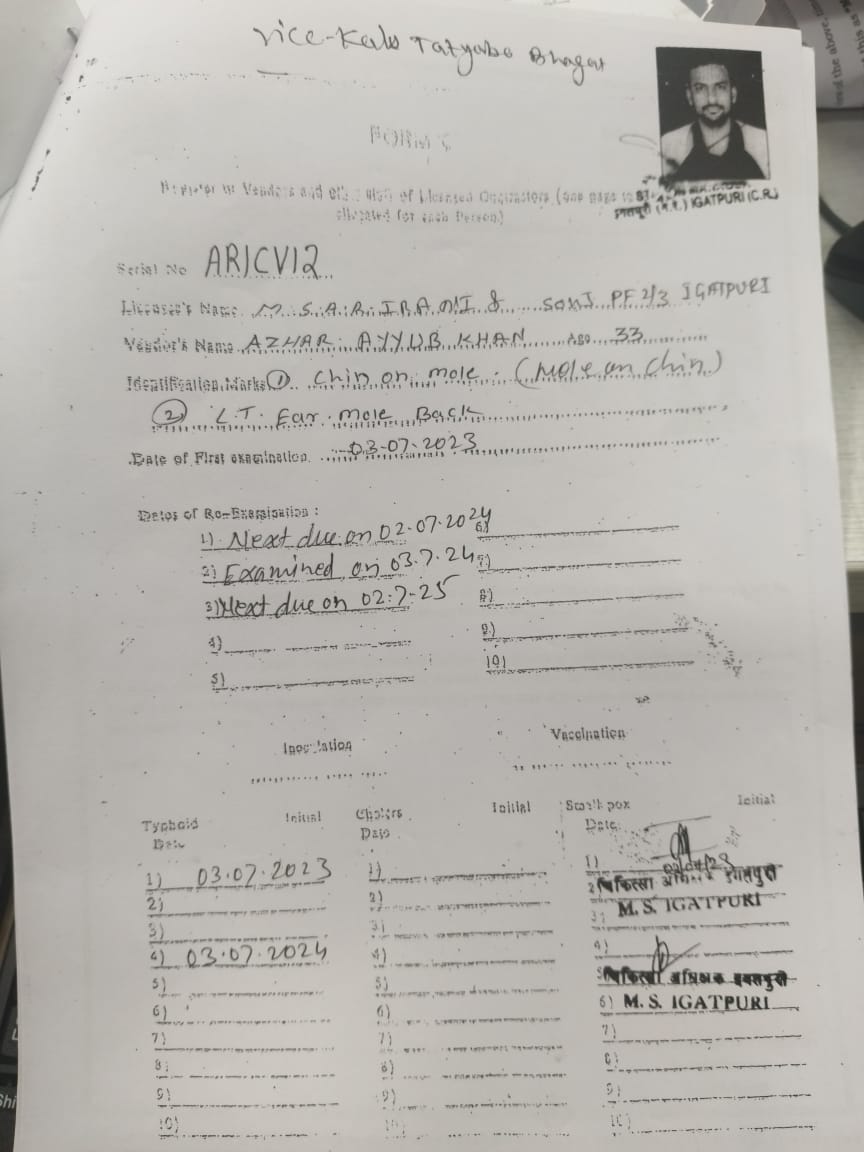 Vice-Kalu Tatyaba Bhagat
FORM C
Register of Vendors and of Licensed Contractors (one page to
allocated for each Person)
इगतपुरी (म.रे.) IGATPURI (C.R.)
Serial No ARICV12
Licensee's Name M.S.A.R. IRANI & SONS PF 2/3 IGATPURI
Vendor's Name AZHAR AYYUB KHAN Age 33
Identification Marks ① Chin on mole. (Mole on Chin.)
② L.T. Ear mole Back
Date of First examination 03-07-2023
Dates of Re-Examination :
1) Next due on 02-07-2024 6)
2) Examined on 03.7.24 7)
3) Next due on 02-7-25 8)
4) 9)
5) 10)
Inoculation Vaccination
Typhoid Initial Cholera Initial Small pox Initial
Date Date Date
1) 03.07.2023 1) 1)
2) 2) 2) चिकित्सा इगतपुरी
3) 3) 3) M. S. IGATPURI
4) 03.07.2024 4) 4)
5) 5) 5) चिकित्सा अधिक्षक इगतपुरी
6) 6) 6) M. S. IGATPURI
7) 7) 7)
8) 8) 8)
9) 9) 9)
10) 10) 10)